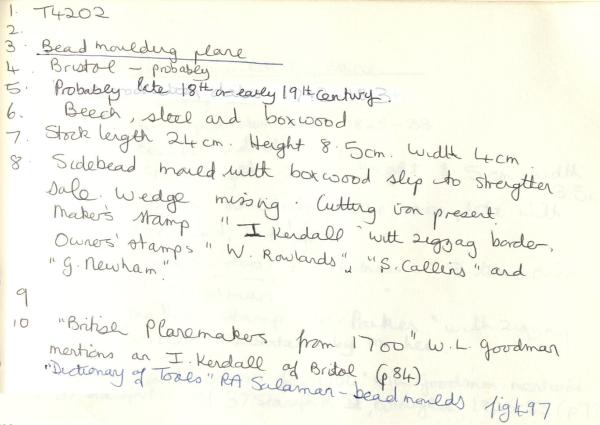 1. T4202
2.
3. Bead moulding plane
4. Bristol - probably
5. Probably late 18th or early 19th century.
6. Beech, steel and boxwood
7. Stock length 24cm. Height 8.5cm. Width 4cm.
8. Sidebead mould with boxwood slip to strengthen
sole. Wedge missing. Cutting iron present.
Maker's stamp "I Kendall" with zigzag border.
Owners' stamps "W. Rowlands", "S. Callins" and
"G. Newham".
9
10 "British Planemakers from 1700" W.L. Goodman
mentions an I. Kendall of Bristol (p84)
"Dictionary of Tools" RA Salaman - bead moulds fig 497